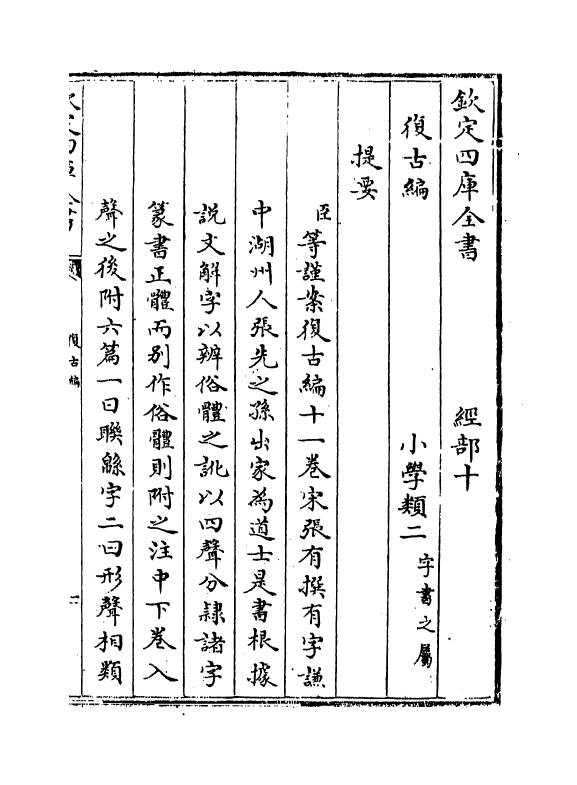 欽定四庫全書　經部十
復古編　小學類二字書之屬
提要
臣等謹案復古編十一卷宋張有撰有字謙
中湖州人張先之孫出家為道士是書根據
說文解字以辨俗體之訛以四聲分隸諸字
篆書正體而别作俗體則附之注中下卷入
聲之後附六篇一曰聯緜字二曰形聲相類
復古編